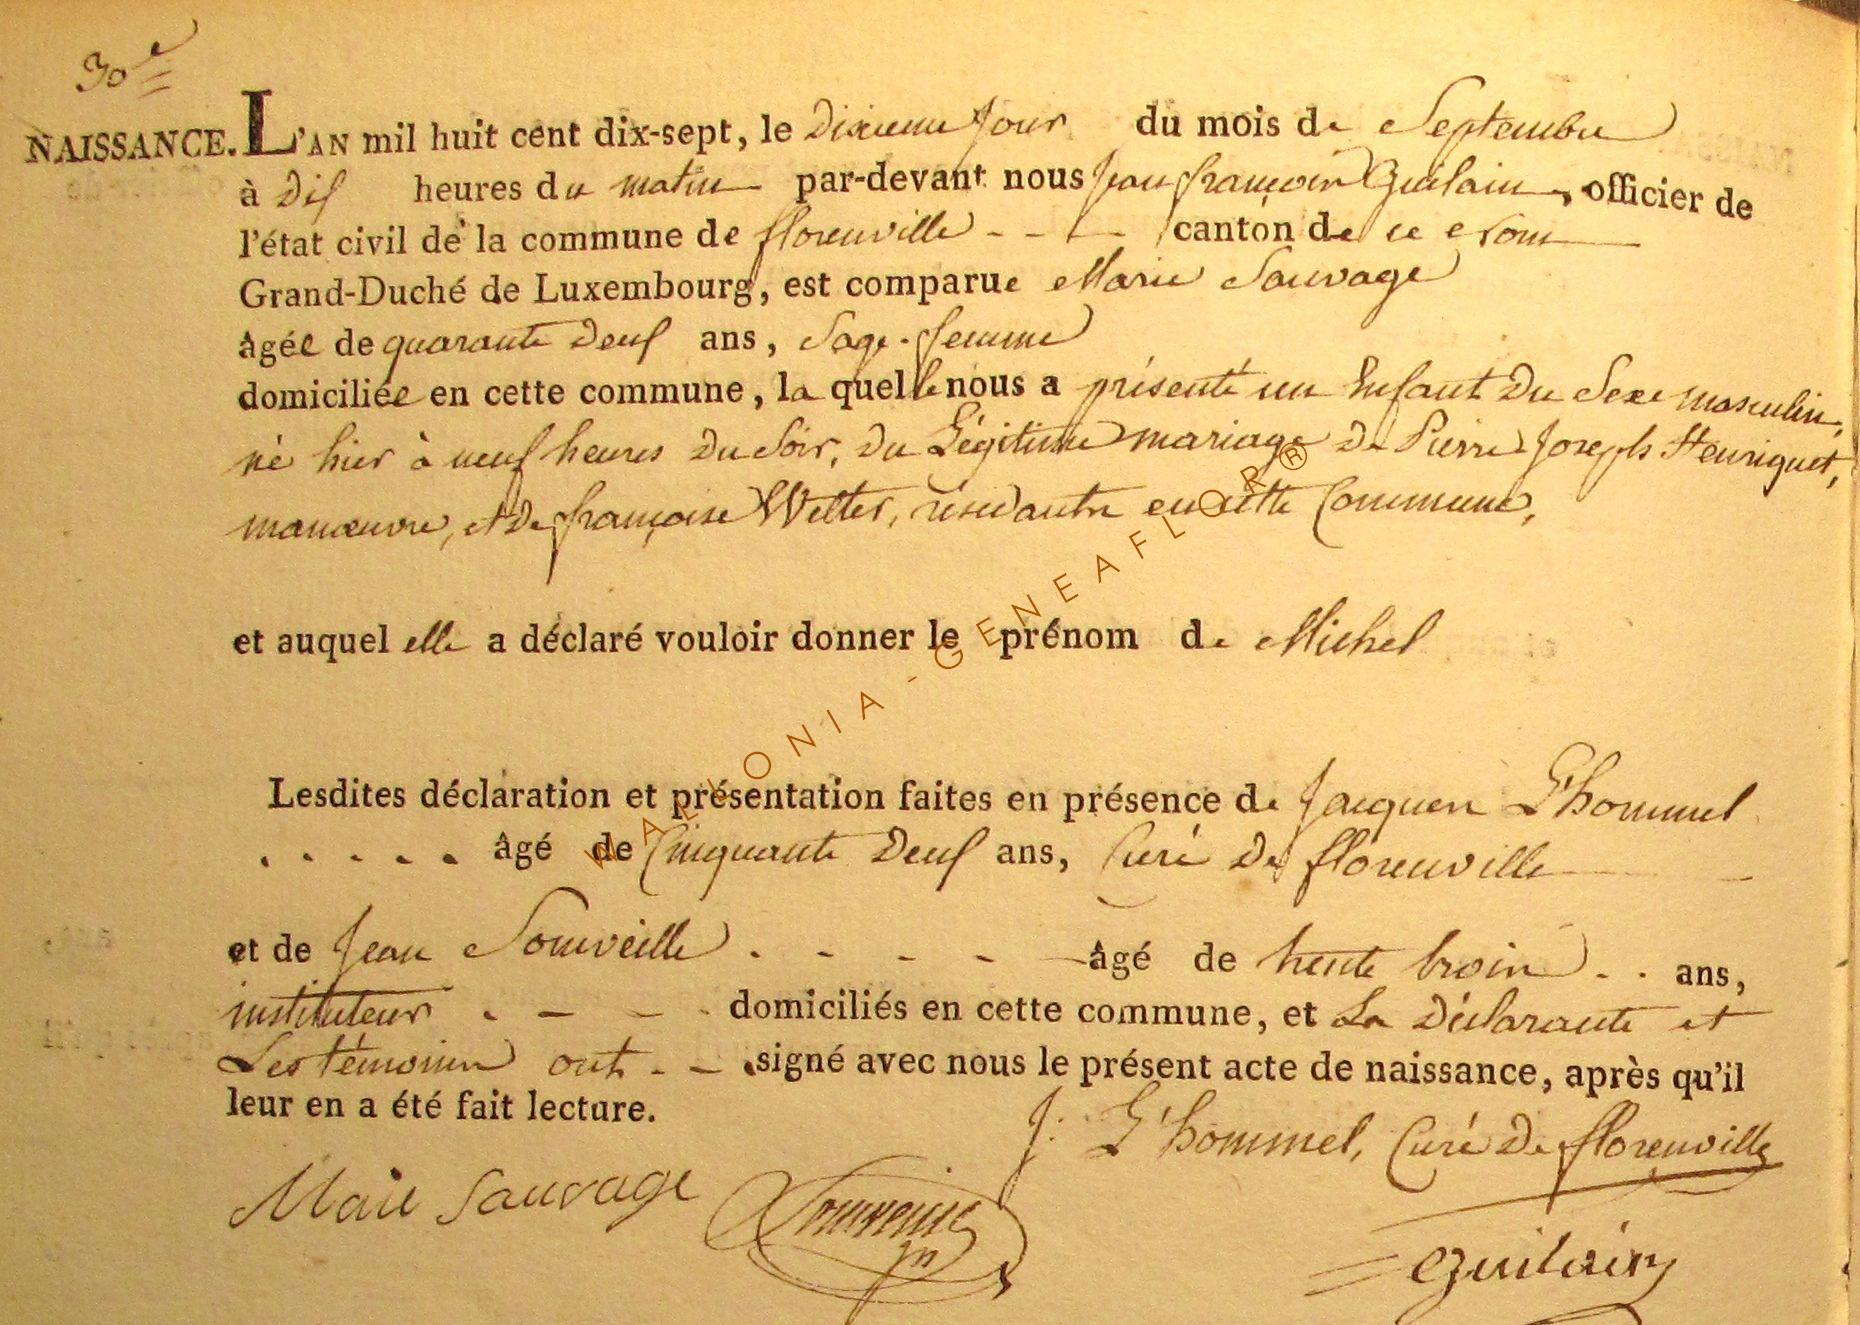 30e
NAISSANCE. L'AN mil huit cent dix-sept, le dixieme Jour du mois de Septembre
à dix heures du matin par-devant nous Jean françois Guilain, officier de
l'état civil de la commune de florenville - - - canton de ce nom
Grand-Duché de Luxembourg, est comparue Marie Sauvage
âgée de quarante deux ans, Sage-femme
domiciliée en cette commune, la quelle nous a présenté un Enfant du Sexe masculin,
né hier à neuf heures du Soir, du Légitime mariage de Pierre Joseph Henriquet,
manœuvre, et de françoise Welter, résidante en cette Commune,
et auquel elle a déclaré vouloir donner le prénom de Michel
Lesdites déclaration et présentation faites en présence de Jacques L'hommel
. . . . . âgé de Cinquante deux ans, Curé de florenville
et de Jean Souveille . - - - âgé de trente trois . . ans,
instituteur . - - . domiciliés en cette commune, et La Déclarante et
Les témoins ont - - signé avec nous le présent acte de naissance, après qu'il
leur en a été fait lecture.
J: L'hommel, Curé de florenville
Marie Sauvage
Guilain
WALLONIA - GENEAFLOR®